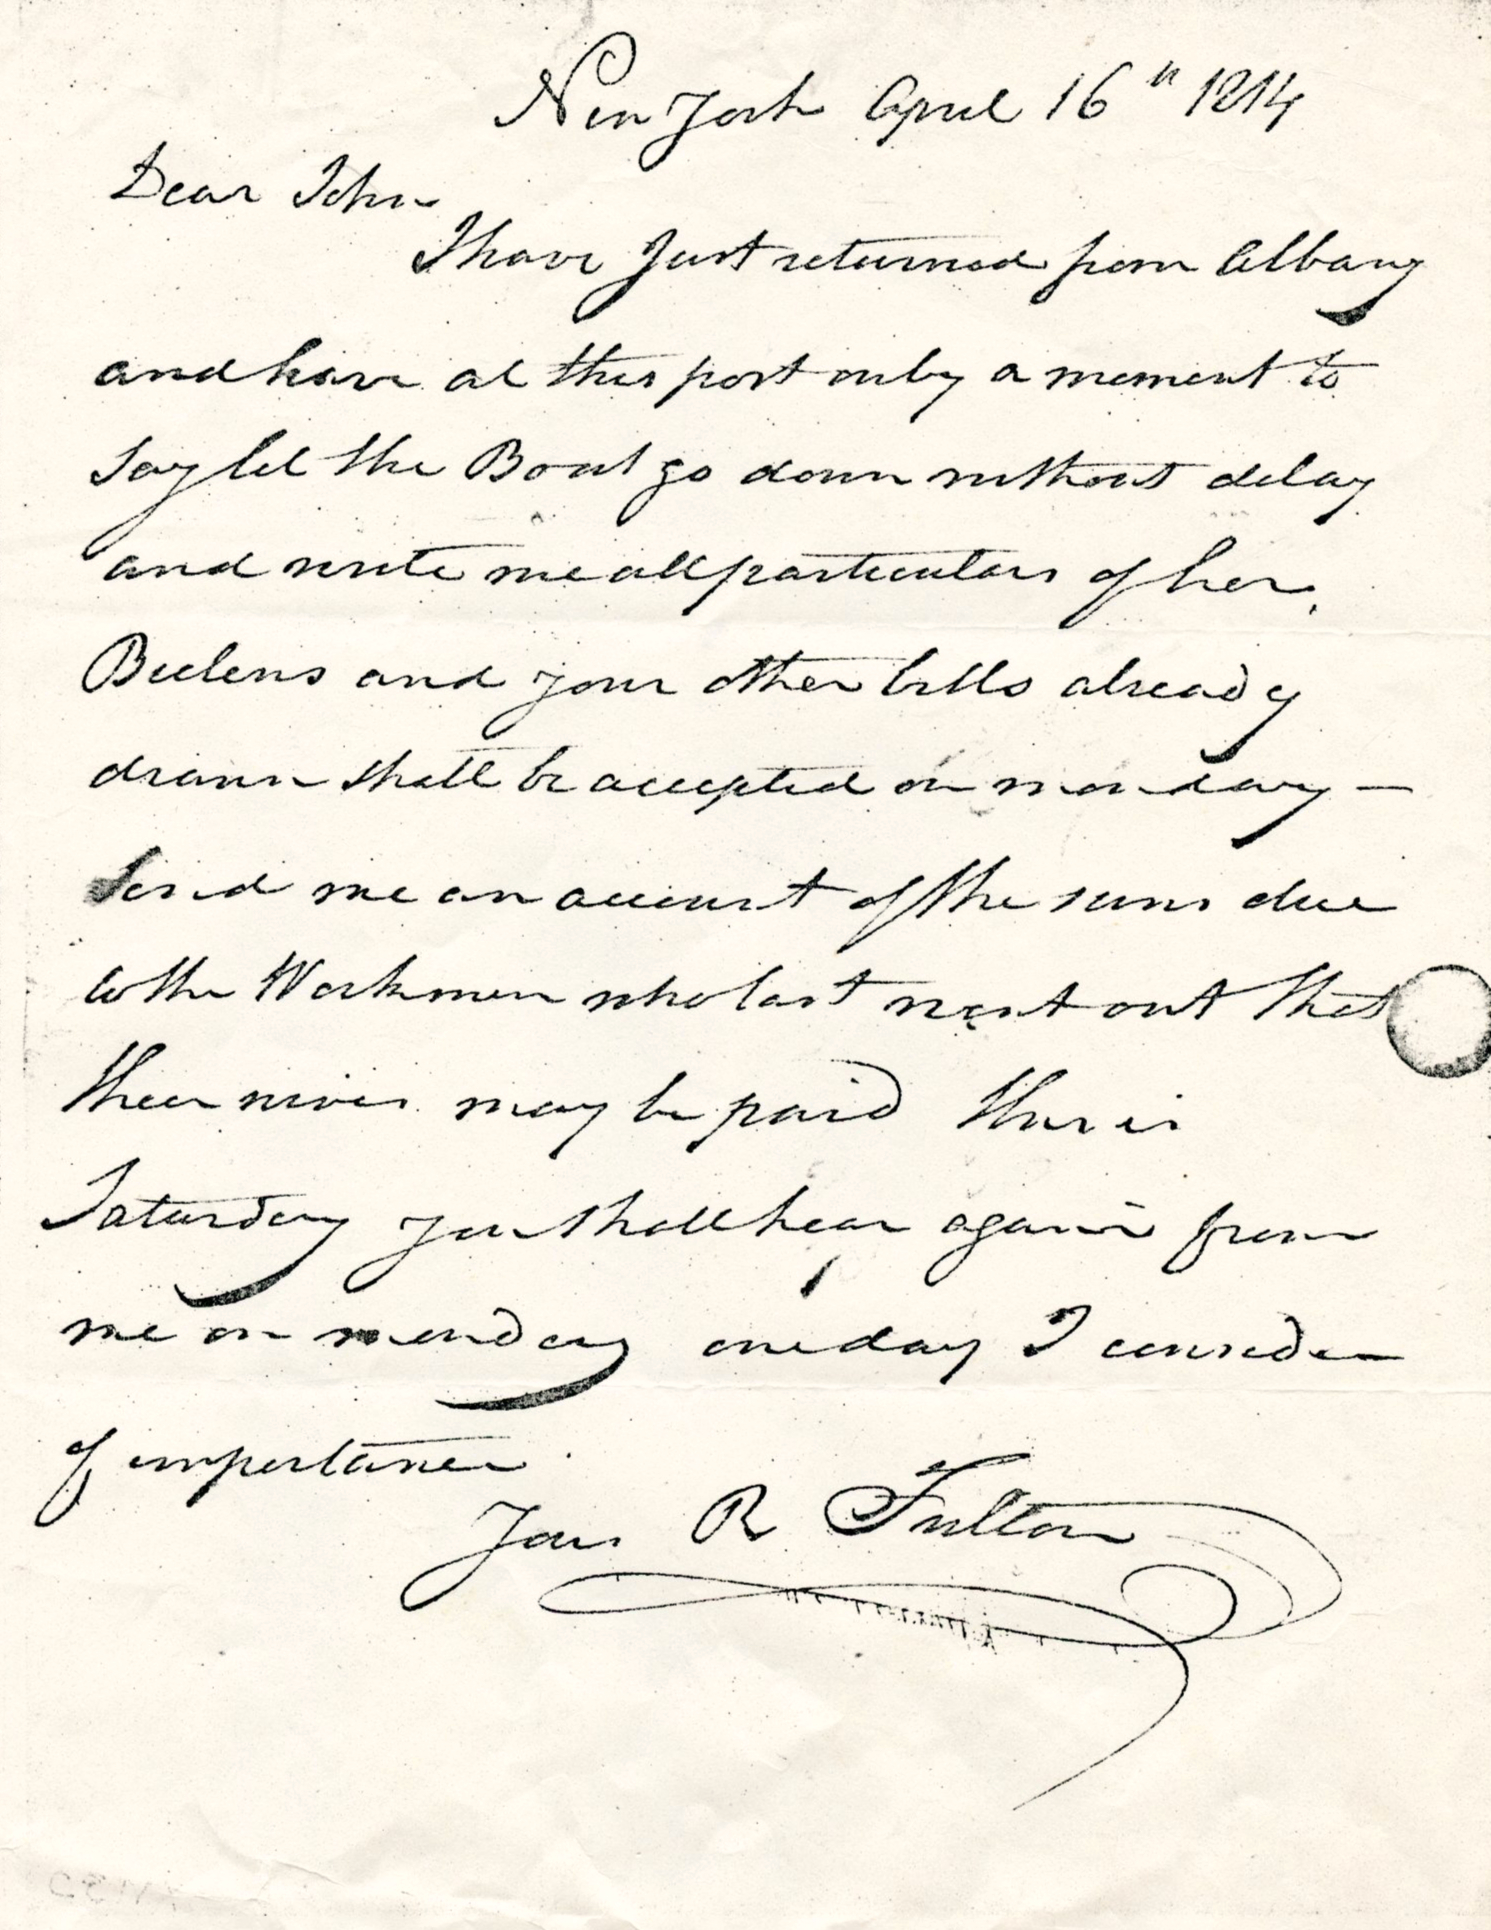 New York April 16th 1814
Dear John
I have Just returned from Albany
and have at this post only a moment to
say let the Boat go down without delay
and write me all particulars of her,
Beelens and your other bills already
drawn shall be accepted on monday —
Send me an account of the sums due
to the Workmen who last went out that
their wives may be paid this is
Saturday you shall hear again from
me on monday one day I consider
of importance.
Yours R Fulton